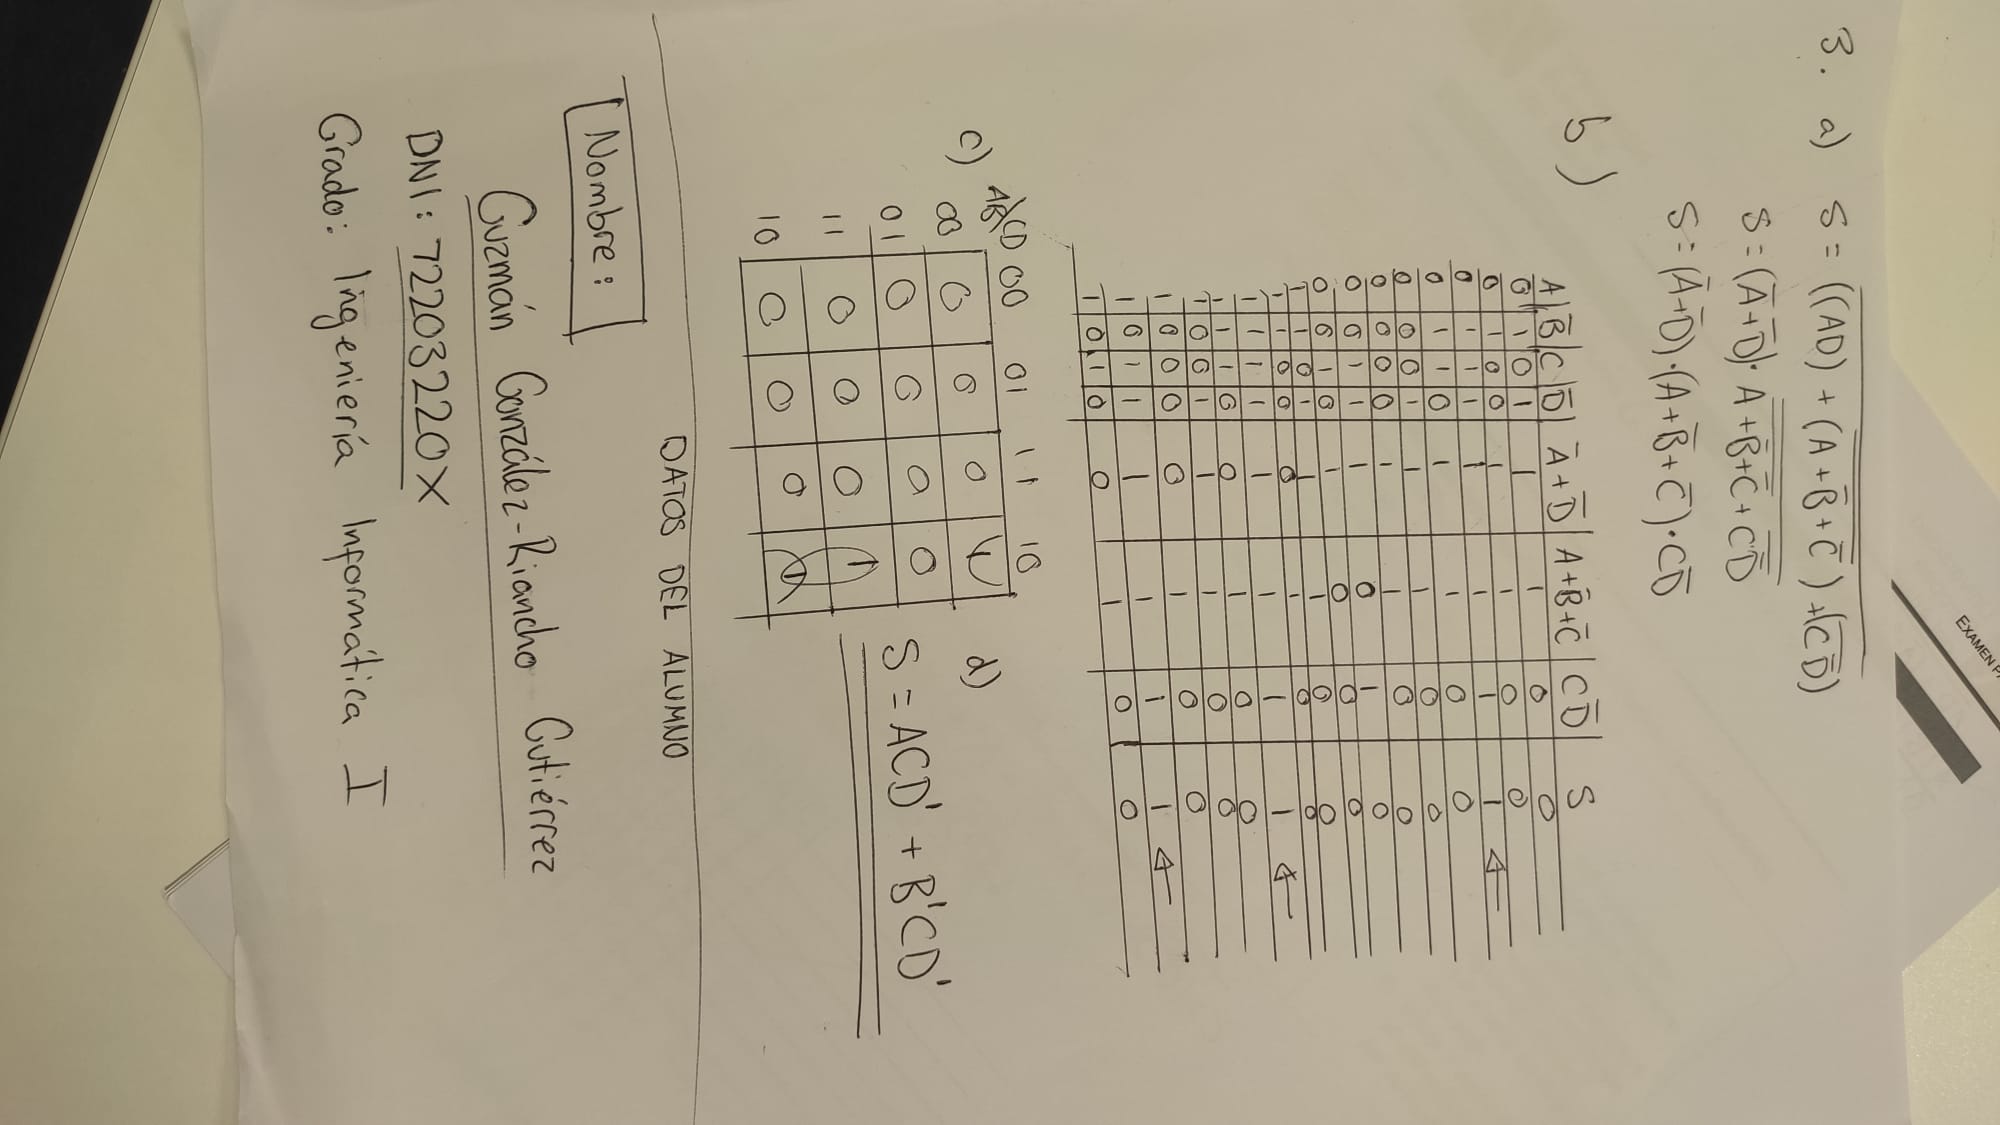 EXAMEN P
3. a) S = ((AD) + (A+B̅+C̅) + (CD̅))
S = (A̅+D̅) · A+B̅+C̅ + CD̅
S = (A̅+D̅) · (A+B̅+C̅) · CD̅
b)
A | B̅ | C | D̅ | A̅+D̅ | A+B̅+C̅ | CD̅ | S
0 | 1 | 0 | 1 | 1 | 1 | 0 | 0
0 | 1 | 0 | 0 | 1 | 1 | 0 | 0
0 | 1 | 1 | 1 | 1 | 1 | 1 | 1 ←
0 | 1 | 1 | 0 | 1 | 1 | 0 | 0
0 | 0 | 0 | 1 | 1 | 1 | 0 | 0
0 | 0 | 0 | 0 | 1 | 1 | 0 | 0
0 | 0 | 1 | 1 | 1 | 0 | 1 | 0
0 | 0 | 1 | 0 | 1 | 0 | 0 | 0
1 | 1 | 0 | 1 | 1 | 1 | 0 | 0
1 | 1 | 0 | 0 | 0 | 1 | 0 | 0
1 | 1 | 1 | 1 | 1 | 1 | 1 | 1 ←
1 | 1 | 1 | 0 | 0 | 1 | 0 | 0
1 | 0 | 0 | 1 | 1 | 1 | 0 | 0
1 | 0 | 0 | 0 | 0 | 1 | 0 | 0
1 | 0 | 1 | 1 | 1 | 1 | 1 | 1 ←
1 | 0 | 1 | 0 | 0 | 1 | 0 | 0
c) AB\CD 00 01 11 10
00 0 0 0 1
01 0 0 0 0
11 0 0 0 1
10 0 0 0 1
d)
S = ACD' + B'CD'
DATOS DEL ALUMNO
Nombre:
Guzmán González-Riancho Gutiérrez
DNI: 72203220X
Grado: Ingeniería Informática I